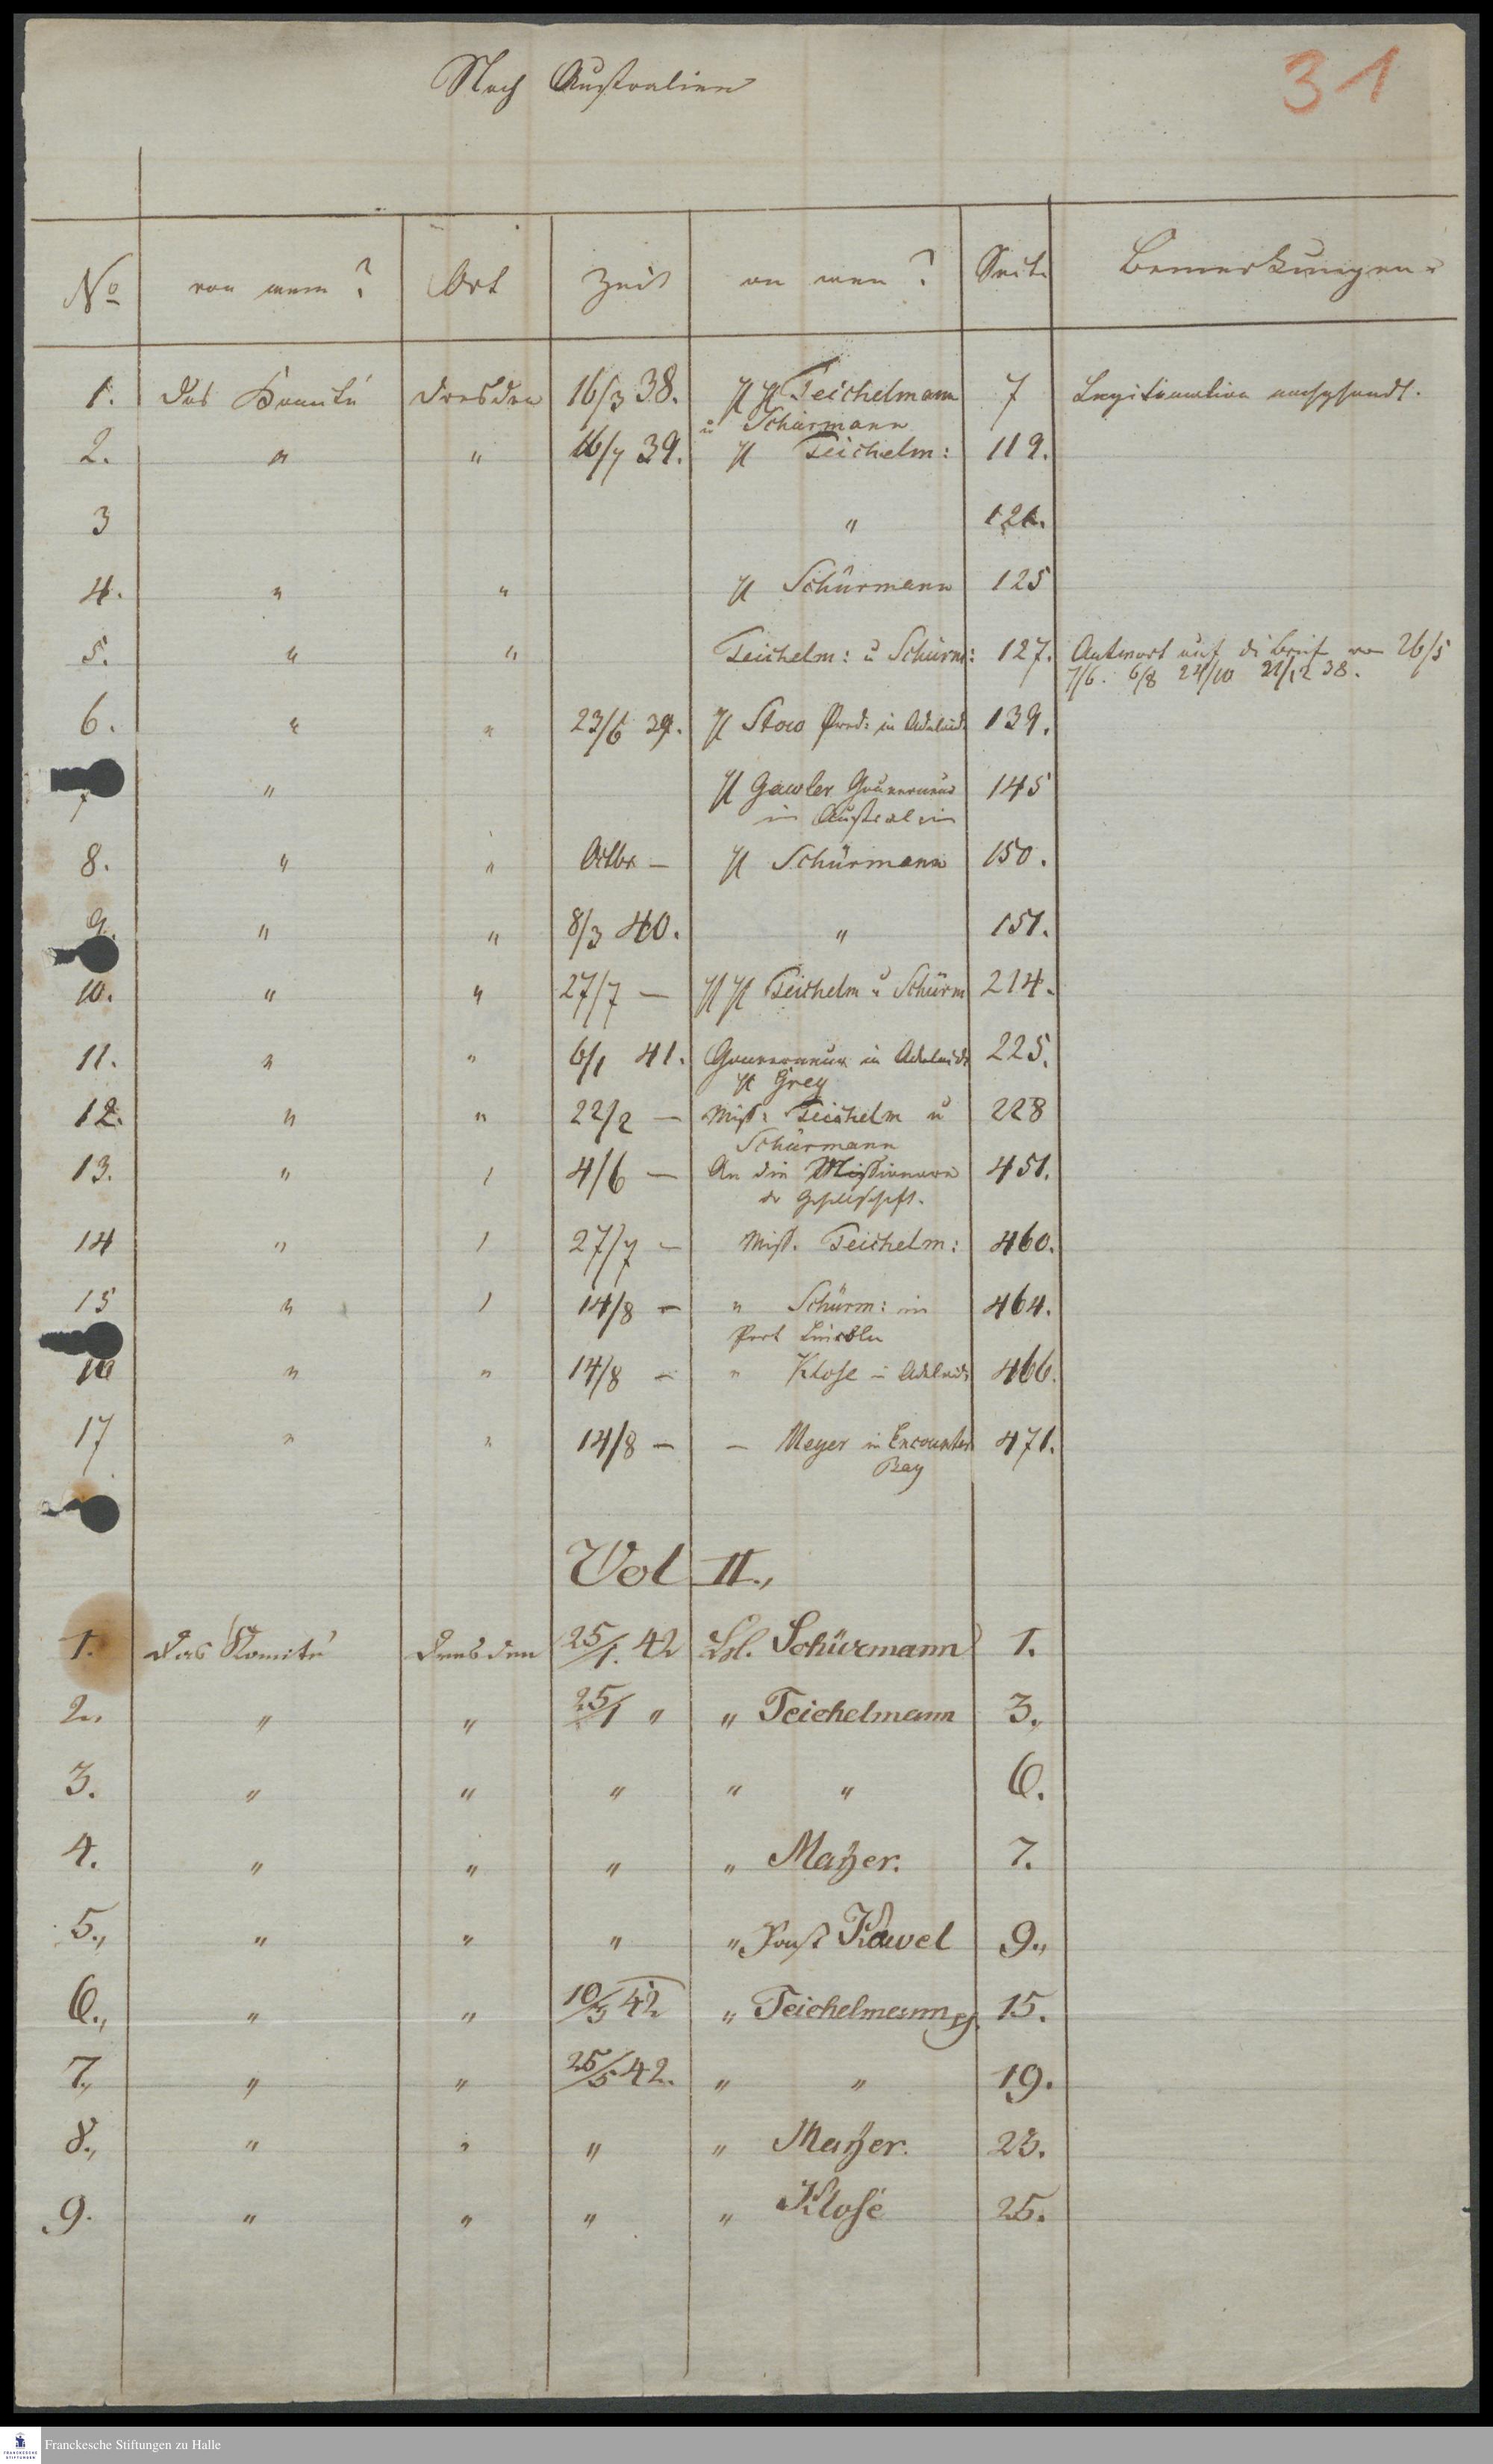 Nach Australien
31
No von wem? Ort Zeit an wen? Seite Bemerkungen
1. Das Komité Dresden 16/3 38. HH Teichelmann 7 Legitimation nachgesandt.
u Schürmann
2. " " 16/7 39. H Teichelm: 119.
3 " 121.
4. " " H Schürmann 125
5. " " Teichelm: u Schürm: 127. Antwort auf di Brief von 26/5
7/6. 6/8 24/10 21/12 38.
6. " " 23/6 39. H Stow Pred: in Adelaide 139.
7 " H Gawler Gouverneur 145
in Australien
8. " " Octbr — H Schürmann 150.
9. " " 8/3 40. " 151.
10. " " 27/7 — HH Teichelm u Schürm 214.
11. " " 6/1 41. Gouverneur in Adelaide 225.
H Grey
12. " " 22/2 — Miss: Teichelm u 228
Schürmann
13. " " 4/6 — An die Missionare 451.
der Gesellschaft.
14 " " 27/7 — Miss. Teichelm: 460.
15 " " 14/8 — " Schürm: in 464.
Port Lincoln
16 " " 14/8 — " Klose in Adelaide 466.
17 " " 14/8 — — Meyer in Encounter 471.
Bay
Vol II.,
1. Das Komité Dresden 25/1. 42 Schürmann 1.
2. " " 25/1 " " Teichelmann 3.
3. " " " " " 6.
4. " " " " Mayer. 7.
5., " " " " Past Kavel 9.,
6., " " 10/3 42 " Teichelmann 15.
7., " " 25/5 42. " " 19.
8., " " " " Mayer. 23.
9. " " " " Klose 25.
FRANCKESCHE STIFTUNGEN
Franckesche Stiftungen zu Halle